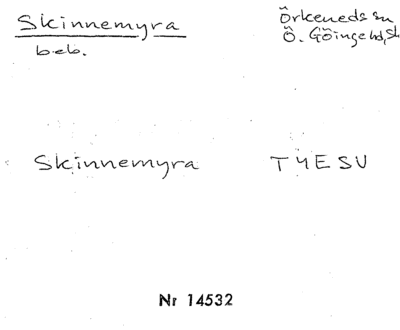 Skinnemyra
beb.
Örkeneds sn
Ö. Göinge hd, Sk
Skinnemyra TYESU
Nr 14532